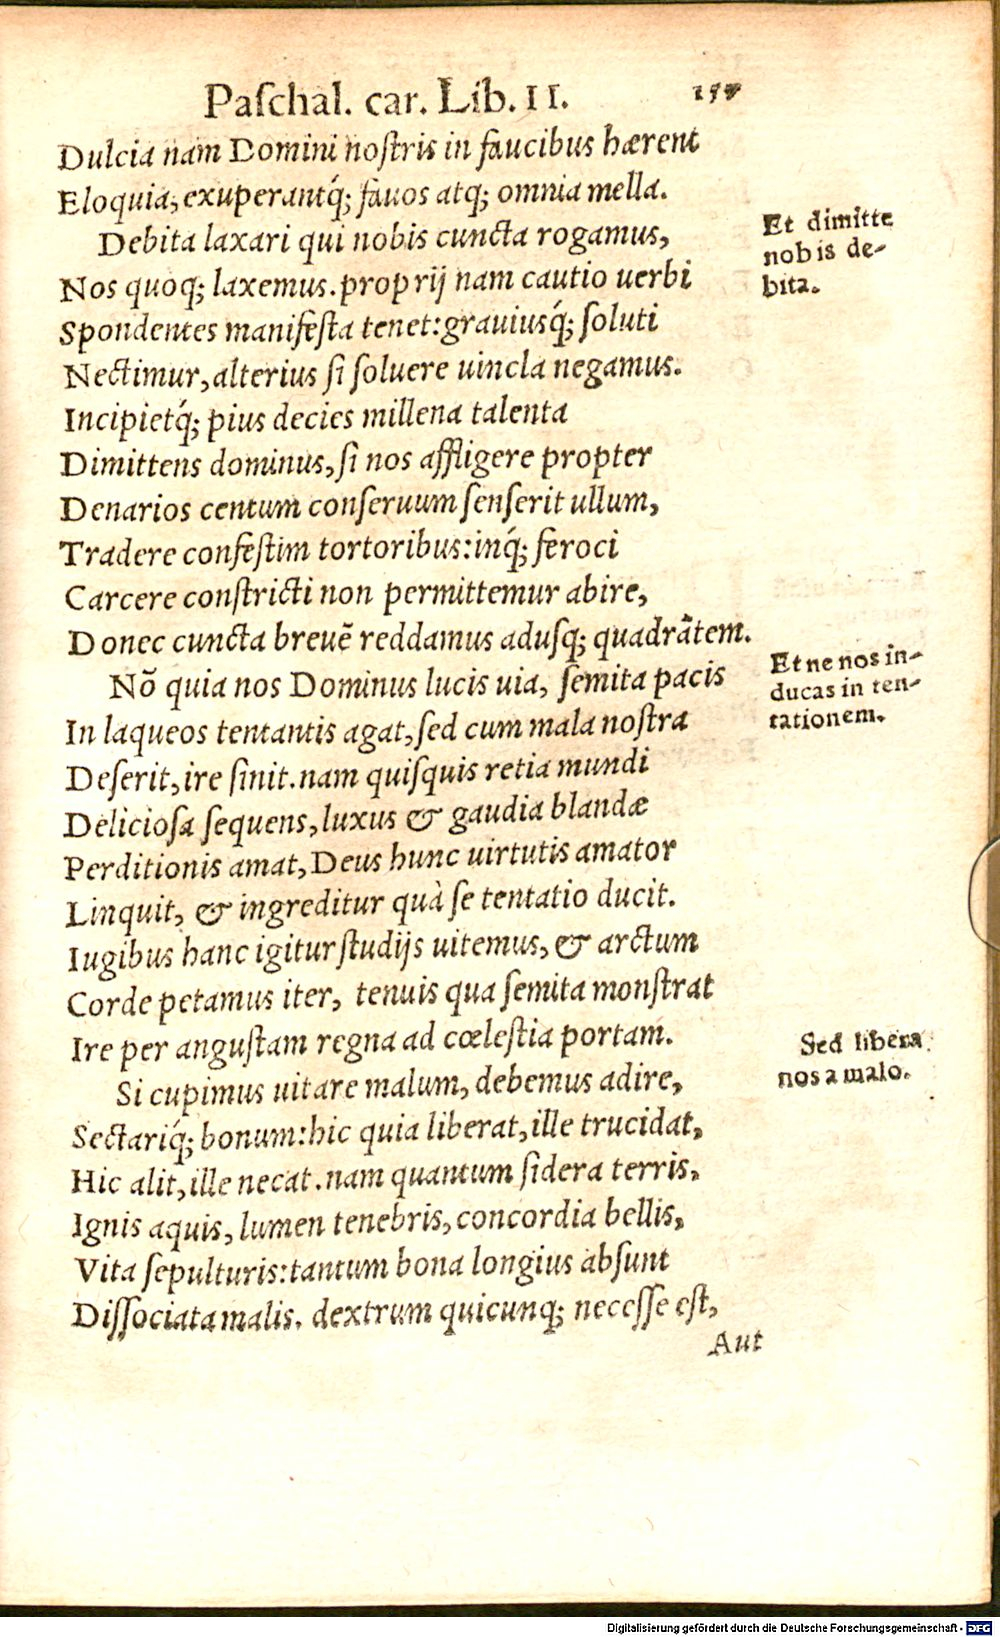 Paſchal. car. Lib. II.
Dulcia nam Domini noſtris in faucibus hærent
Eloquia, exuperantq́; fauos atq; omnia mella.
Debita laxari qui nobis cuncta rogamus,
Et dimitte
nobis de-
bita.
Nos quoq; laxemus. proprij nam cautio uerbi
Spondentes manifeſta tenet: grauiusq́; ſoluti
Nectimur, alterius ſi ſoluere uincla negamus.
Incipietq́; pius decies millena talenta
Dimittens dominus, ſi nos affligere propter
Denarios centum conſeruum ſenſerit ullum,
Tradere confeſtim tortoribus: inq́; feroci
Carcere conſtricti non permittemur abire,
Donec cuncta breuē reddamus aduſq; quadrātem.
Nō quia nos Dominus lucis uia, ſemita pacis
Et ne nos in-
ducas in ten-
tationem.
In laqueos tentantis agat, ſed cum mala noſtra
Deſerit, ire ſinit. nam quiſquis retia mundi
Delicioſa ſequens, luxus & gaudia blandæ
Perditionis amat, Deus hunc uirtutis amator
Linquit, & ingreditur quà ſe tentatio ducit.
Iugibus hanc igitur ſtudijs uitemus, & arctum
Corde petamus iter, tenuis qua ſemita monſtrat
Ire per anguſtam regna ad cœleſtia portam.
Sed libera
nos a malo.
Si cupimus uitare malum, debemus adire,
Sectariq́; bonum: hic quia liberat, ille trucidat,
Hic alit, ille necat. nam quantum ſidera terris,
Ignis aquis, lumen tenebris, concordia bellis,
Vita ſepulturis: tantum bona longius abſunt
Diſſociata malis. dextrum quicunq; neceſſe eſt,
Aut
Digitalisierung gefördert durch die Deutsche Forschungsgemeinschaft - DFG